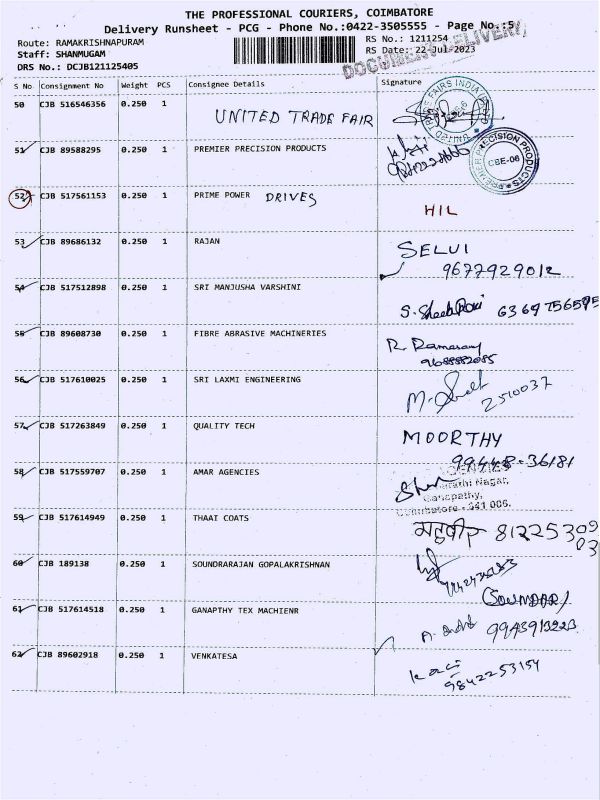 THE PROFESSIONAL COURIERS, COIMBATORE
Delivery Runsheet - PCG - Phone No.:0422-3505555 - Page No.:5
Route: RAMAKRISHNAPURAM
RS No.: 1211254
Staff: SHANMUGAM
RS Date: 22-Jul-2023
DRS No.: DCJB121125405
DELIVERY
S No. Consignment No Weight PCS Consignee Details Signature
50 CJB 516546356 0.250 1 UNITED TRADE FAIR
TRADE FAIRS INDIA
51 CJB 89588295 0.250 1 PREMIER PRECISION PRODUCTS
PREMIER PRECISION PRODUCTS CBE-06
52 CJB 517561153 0.250 1 PRIME POWER DRIVES HIL
53 CJB 89686132 0.250 1 RAJAN SELVI
9677929012
54 CJB 517512898 0.250 1 SRI MANJUSHA VARSHINI
55 CJB 89608730 0.250 1 FIBRE ABRASIVE MACHINERIES R.
56 CJB 517610025 0.250 1 SRI LAXMI ENGINEERING 2510037
57 CJB 517263849 0.250 1 QUALITY TECH MOORTHY
99448-36181
58 CJB 517559707 0.250 1 AMAR AGENCIES
Nagar,
Ganapathy,
Coimbatore - 641 006.
59 CJB 517614949 0.250 1 THAAI COATS 81225309
03
60 CJB 189138 0.250 1 SOUNDRARAJAN GOPALAKRISHNAN
(SOUNDAR)
61 CJB 517614518 0.250 1 GANAPTHY TEX MACHIENR
62 CJB 89602918 0.250 1 VENKATESA
9842253154